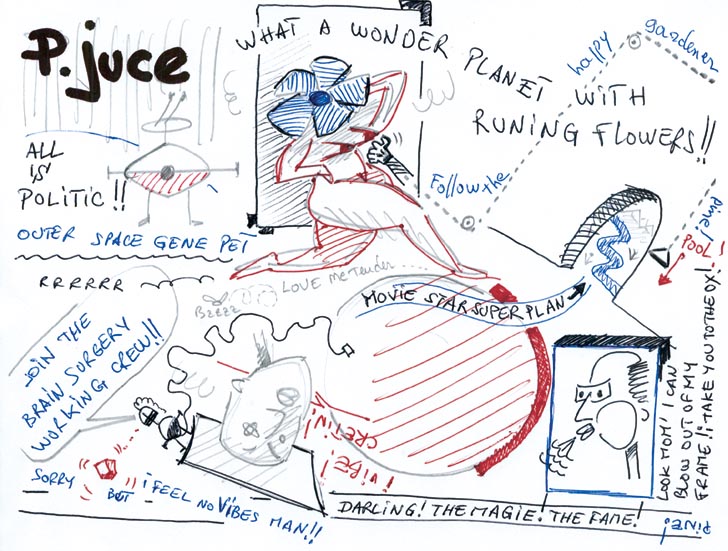 P. juce
WHAT A WONDER PLANET WITH
RUNING FLOWERS!!
happy
gardener
Follow the
ALL
is
POLITIC!!
OUTER SPACE GENE PET
RRRRRR
LOVE me Tender....
Bzzzz
MOVIE STAR SUPER PLAN
POOL!
JOIN THE
BRAIN SURGERY
WORKING CREW!!
CRETIN!
! VIBE!
SORRY
BUT
i FEEL NO VIBES MAN!!
LOOK MOM! I CAN
BLOW OUT OF MY
FRAME!! TAKE YOU TO THE OX!
DARLING! THE MAGIE! THE FAME!